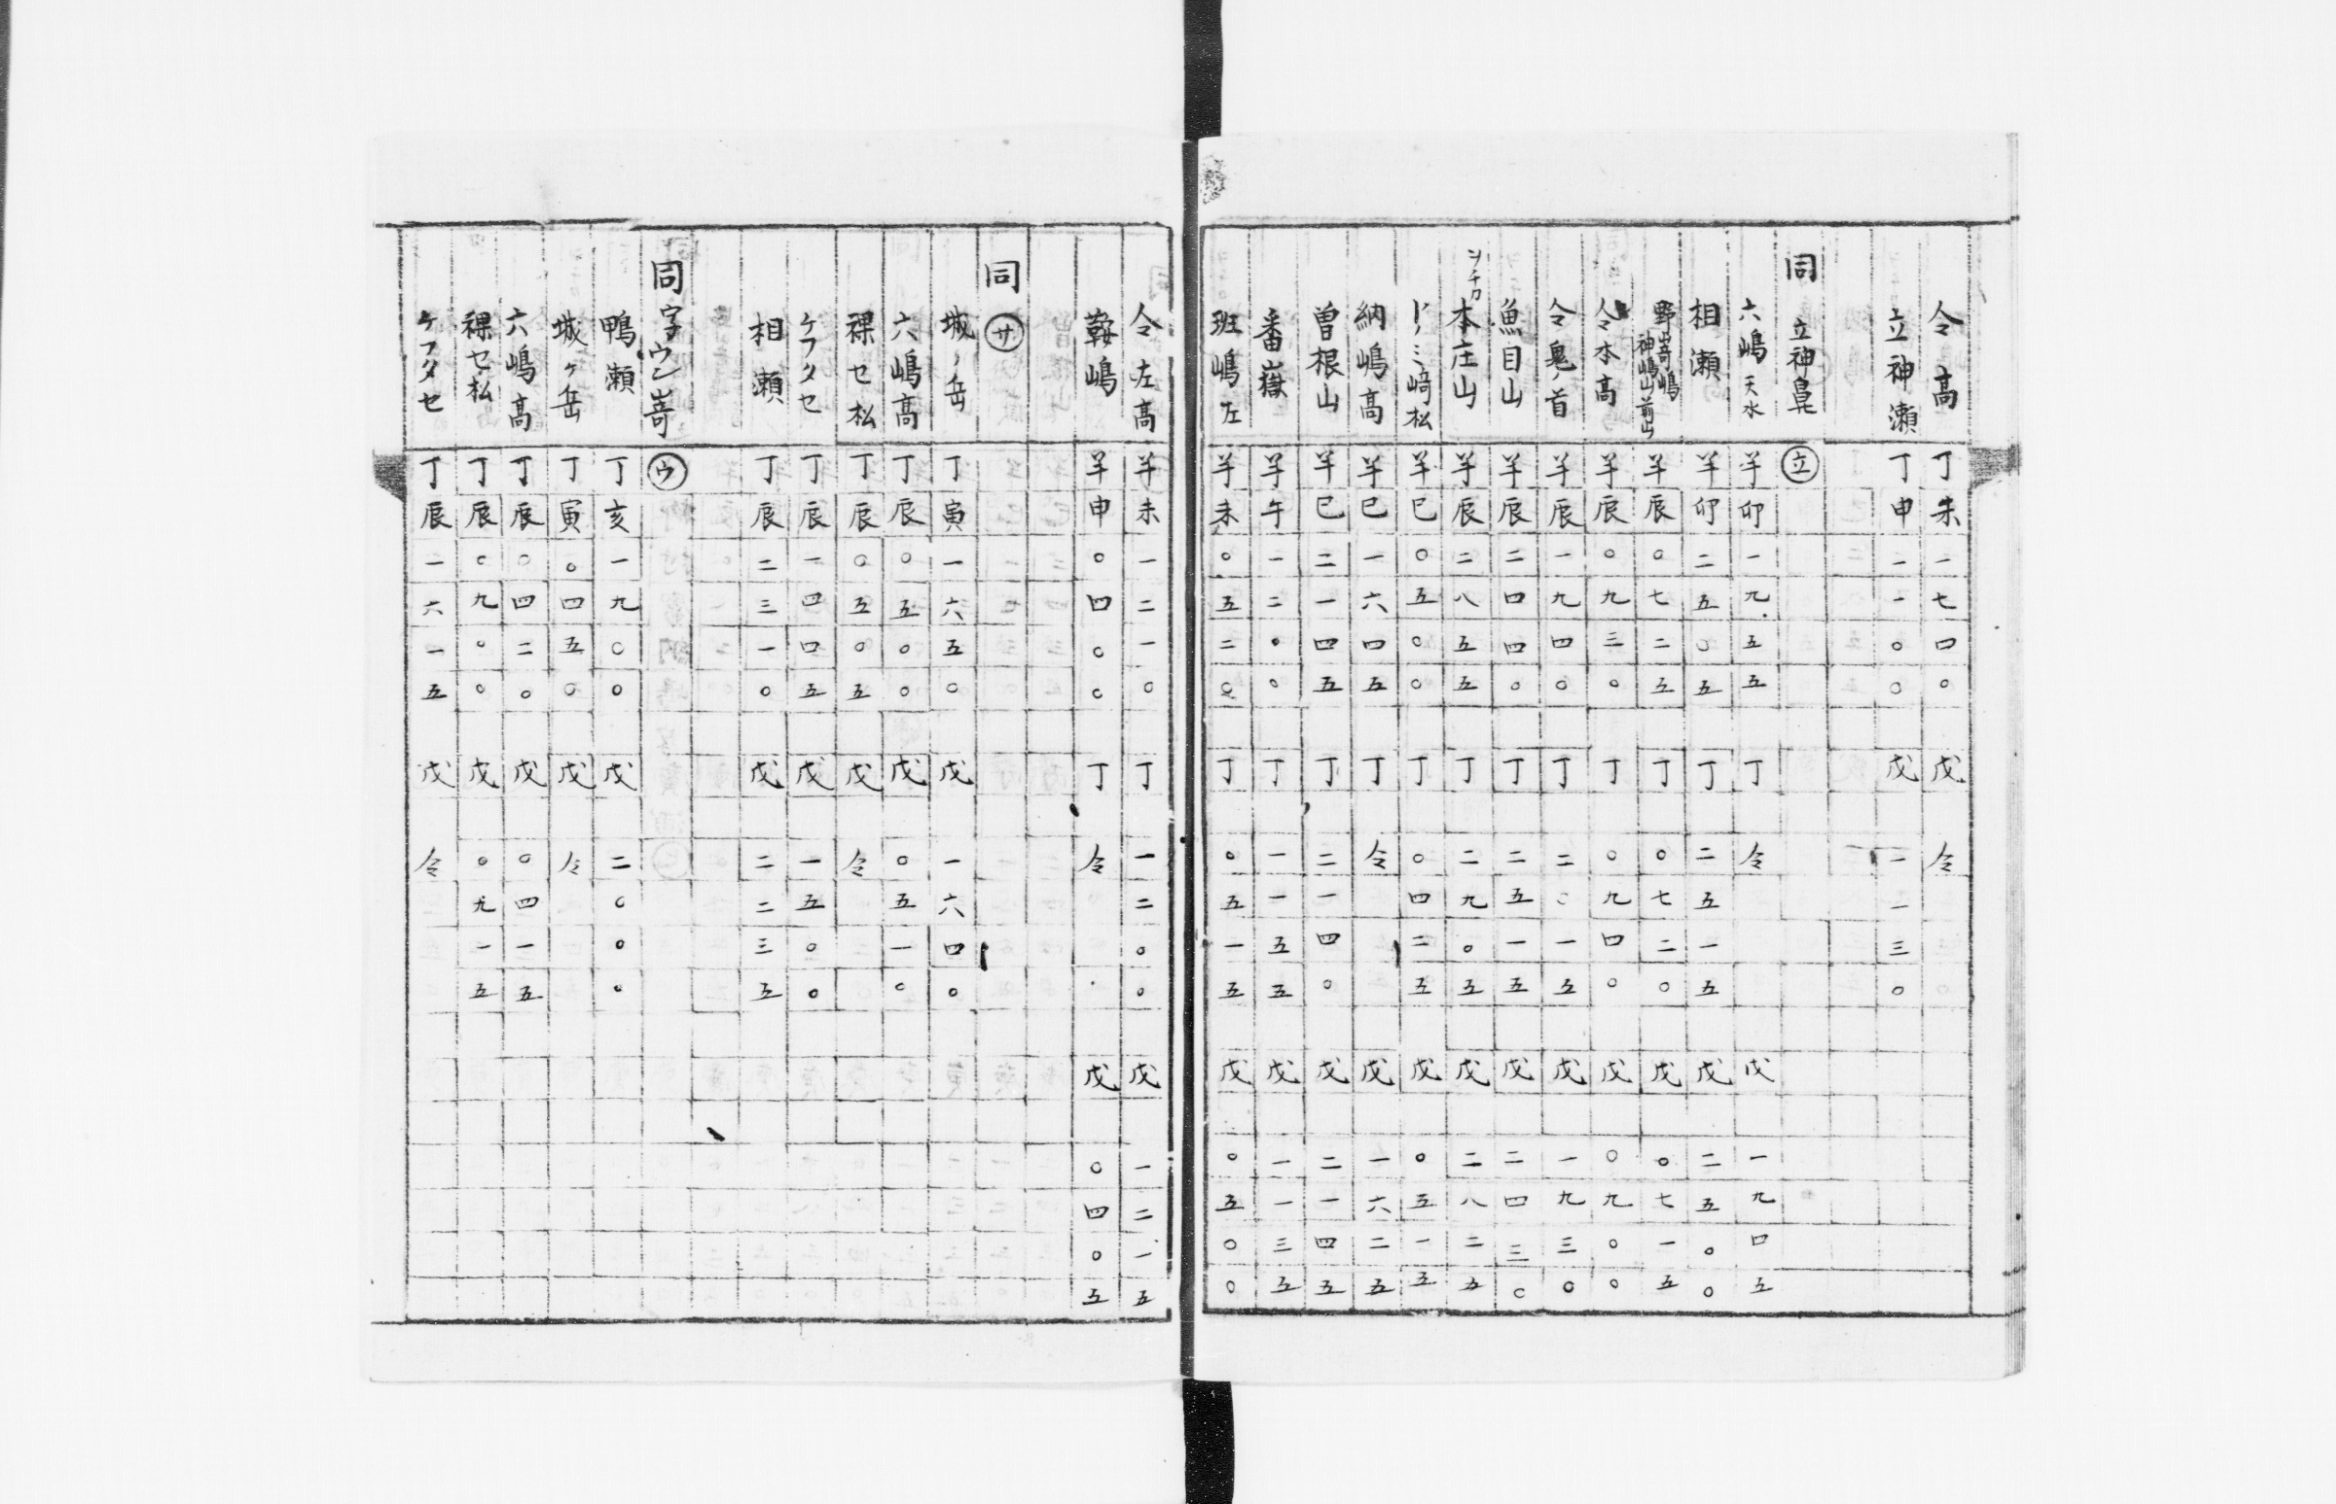 令高 丁未一七四〇 戊 令
立神瀬 丁申一一〇〇 戊 一一三〇
同 立神鼻 立
六嶋天水 羊卯一九五五 丁 令 戊 一九四五
相瀬 羊卯二五〇五 丁 二五一五 戊 二五〇〇
野嵜嶋神嶋山前山 羊辰〇七二五 丁 〇七二〇 戊 〇七一五
令本高 羊辰〇九三〇 丁 〇九四〇 戊 〇九〇〇
令鬼ノ首 羊辰一九四〇 丁 二〇一五 戊 一九三〇
魚目山 羊辰二四四〇 丁 二五一五 戊 二四三〇
本庄山 羊辰二八五五 丁 二九〇五 戊 二八二五
ドノミ﨑松 羊巳〇五〇〇 丁 〇四二五 戊 〇五一五
納嶋高 羊巳一六四五 丁 令 戊 一六二五
曽根山 羊巳二一四五 丁 二一四〇 戊 二一四五
番嶽 羊午一二〇〇 丁 一一五五 戊 一一三五
班嶋左 羊未〇五二〇 丁 〇五一五 戊 〇五〇〇
令左高 羊未一二一〇 丁 一二〇〇 戊 一二一五
鞍嶋 羊申〇四〇〇 丁 令 戊 〇四〇五
同 サ
城ノ岳 丁寅一六五〇 戊 一六四〇
六嶋高 丁辰〇五〇〇 戊 〇五一〇
裸セ松 丁辰〇五〇五 戊 令
ケフタセ 丁辰一四四五 戊 一五〇〇
相瀬 丁辰二三一〇 戊 二二三五
同 字ウシ嵜 ウ
鴨瀬 丁亥一九〇〇 戊 二〇〇〇
城ケ岳 丁寅〇四五〇 戊 令
六嶋高 丁辰〇四二〇 戊 〇四一五
裸セ松 丁辰〇九〇〇 戊 〇九一五
ケフタセ 丁辰一六一五 戊 令